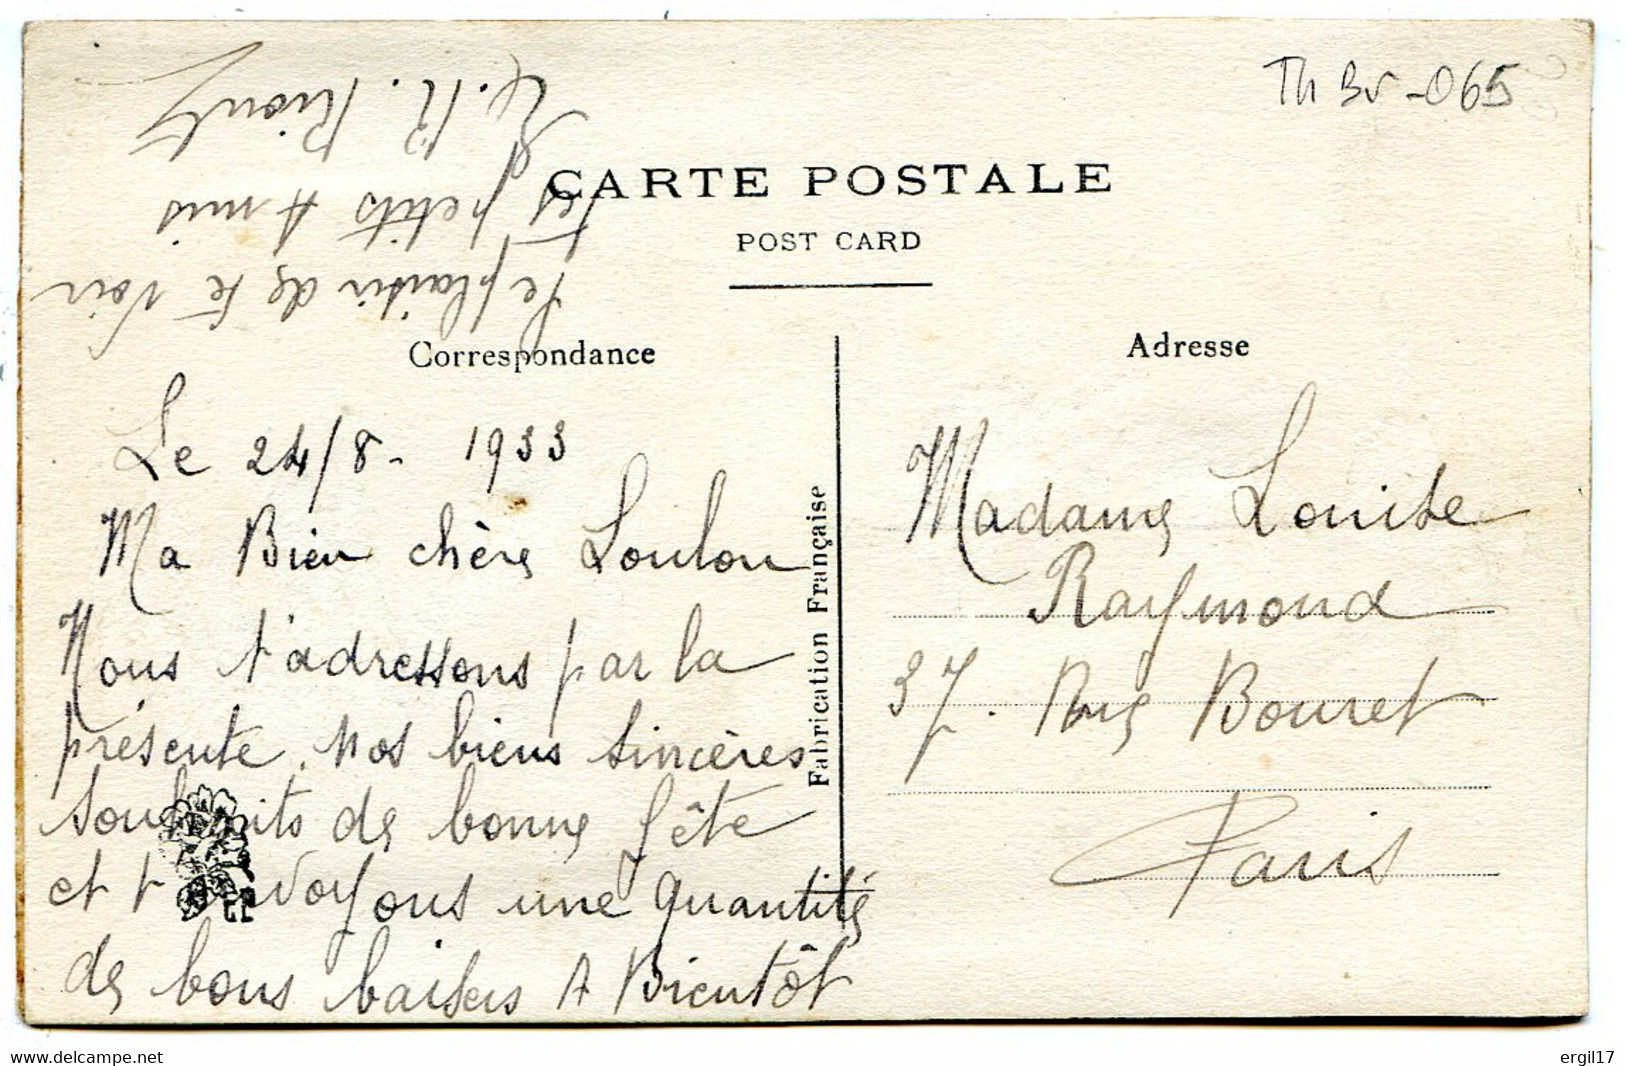 Th Bv - 065
CARTE POSTALE
POST CARD
Correspondance
Adresse
Fabrication Française
Le 24/8 - 1933
Ma Bien chère Loulou
Nous t'adressons par la
présente, nos biens sincères
souhaits de bonne fête
et t'envoyons une quantité
de bons baisers A Bientôt
le plaisir de te voir
Tes petits Amis
Madame Louise
Raymond
37. Rue Bouret
Paris
delcampe.net
ergil17